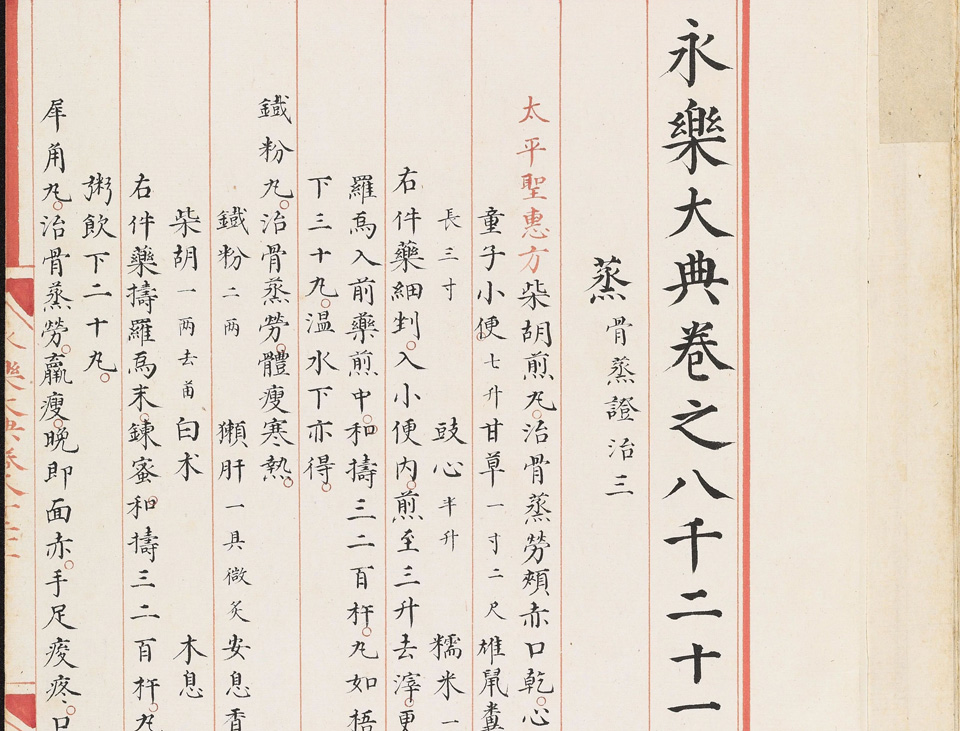 永樂大典卷之八千二十一
蒸 骨蒸證治三
太平聖惠方柴胡煎丸。治骨蒸勞頰赤口乾。心
童子小便。七升 甘草一寸二尺 雄鼠糞
長三寸 豉心半升 糯米一
右件藥細剉。入小便內。煎至三升去滓。更
羅爲入前藥煎中。和擣三二百杵。丸如梧
下三十丸。溫水下亦得。
鐵粉丸。治骨蒸勞。體瘦寒熱。
鐵粉二兩 獺肝一具微炙 安息香
柴胡一兩去苗 白术 木息
右件藥擣羅爲末。鍊蜜。和擣三二百杵。丸
粥飲下二十丸。
犀角丸。治骨蒸勞。羸瘦。晚即面赤。手足痠疼。口